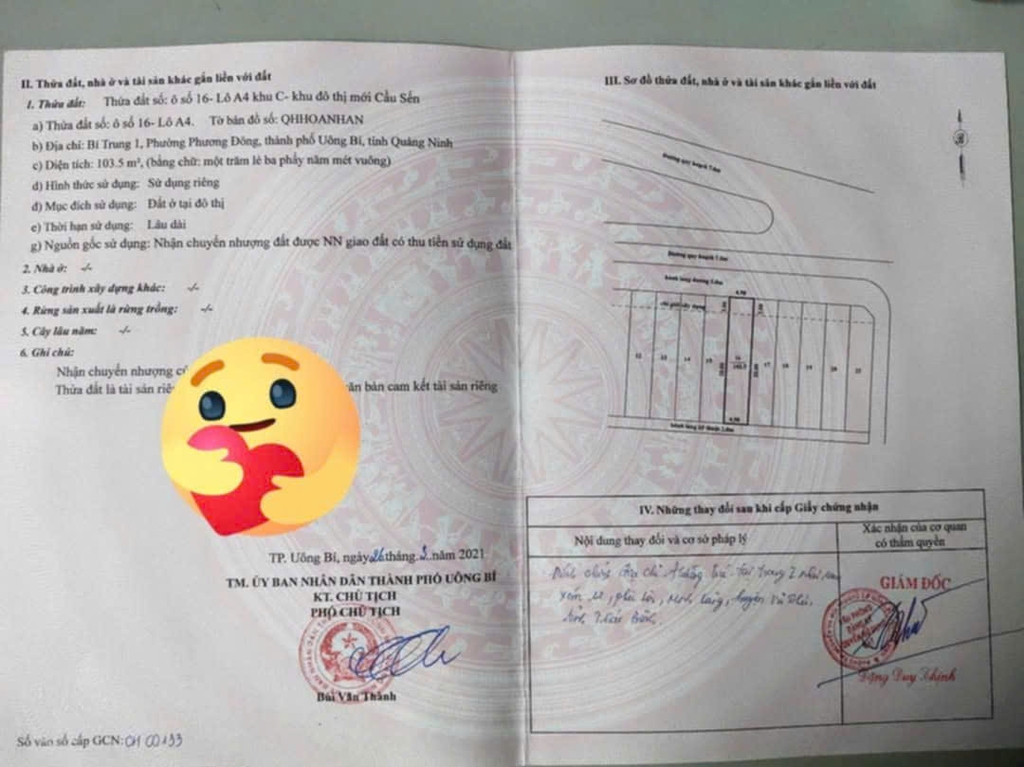 II. Thửa đất, nhà ở và tài sản khác gắn liền với đất
1. Thửa đất: Thửa đất số: ô số 16- Lô A4 khu C- khu đô thị mới Cầu Sến
a) Thửa đất số: ô số 16- Lô A4. Tờ bản đồ số: QHHOANHAN
b) Địa chỉ: Bí Trung 1, Phường Phương Đông, thành phố Uông Bí, tỉnh Quảng Ninh
c) Diện tích: 103.5 m², (bằng chữ: một trăm lẻ ba phẩy năm mét vuông)
d) Hình thức sử dụng: Sử dụng riêng
đ) Mục đích sử dụng: Đất ở tại đô thị
e) Thời hạn sử dụng: Lâu dài
g) Nguồn gốc sử dụng: Nhận chuyển nhượng đất được NN giao đất có thu tiền sử dụng đất
2. Nhà ở: -/-
3. Công trình xây dựng khác: -/-
4. Rừng sản xuất là rừng trồng: -/-
5. Cây lâu năm: -/-
6. Ghi chú:
Nhận chuyển nhượng
Thửa đất là tài sản bản cam kết tài sản riêng
TP. Uông Bí, ngày 26 tháng 3 năm 2021
TM. ỦY BAN NHÂN DÂN THÀNH PHỐ UÔNG BÍ
KT. CHỦ TỊCH
PHÓ CHỦ TỊCH
Bùi Văn Thành
Số vào sổ cấp GCN: CH 00133
III. Sơ đồ thửa đất, nhà ở và tài sản khác gắn liền với đất
Đường quy hoạch
Đường quy hoạch
12 13 14 15 16 17 18 19 20
IV. Những thay đổi sau khi cấp Giấy chứng nhận
Nội dung thay đổi và cơ sở pháp lý
Xác nhận của cơ quan
có thẩm quyền
GIÁM ĐỐC
Đặng Duy Thịnh